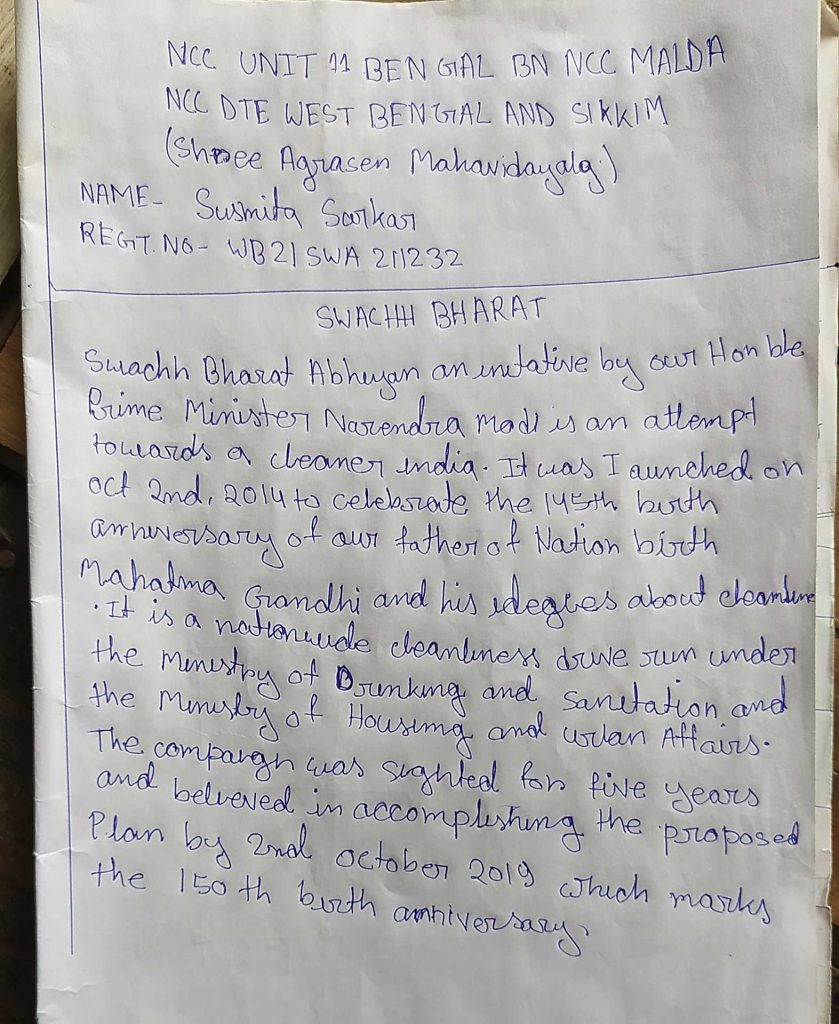 NCC UNIT 11 BENGAL BN NCC MALDA
NCC DTE WEST BENGAL AND SIKKIM
(Shree Agrasen Mahavidayalg)
NAME- Susmita Sarkar
REGT. NO- WB21SWA 211232
SWACHH BHARAT
Swachh Bharat Abhuyan an initative by our Hon ble
Prime Minister Narendra Modi is an attempt
towards a cleaner india. It was Launched on
oct 2nd, 2014 to celebrate the 145th birth
anniversary of our father of Nation birth
Mahatma Grandhi and his idegues about cleanline
. It is a nationwide cleanliness drive run under
the ministry of Drinking and sanitation and
the Ministry of Housing and urban Affairs.
The compargn was sighted for five years
and believed in accomplishing the proposed
Plan by 2nd october 2019 which marks
the 150 th birth anniversary.